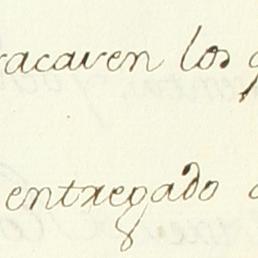 racaven los
entregado